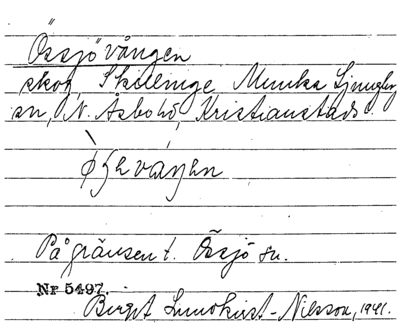 Össjövången
skog, Skillinge, Munka Ljungby
sn, N. Åsbo hd, Kristianstads
På gränsen t. Össjö sn.
Nr 5497.
Birgit Lundkvist-Nilsson, 1941.